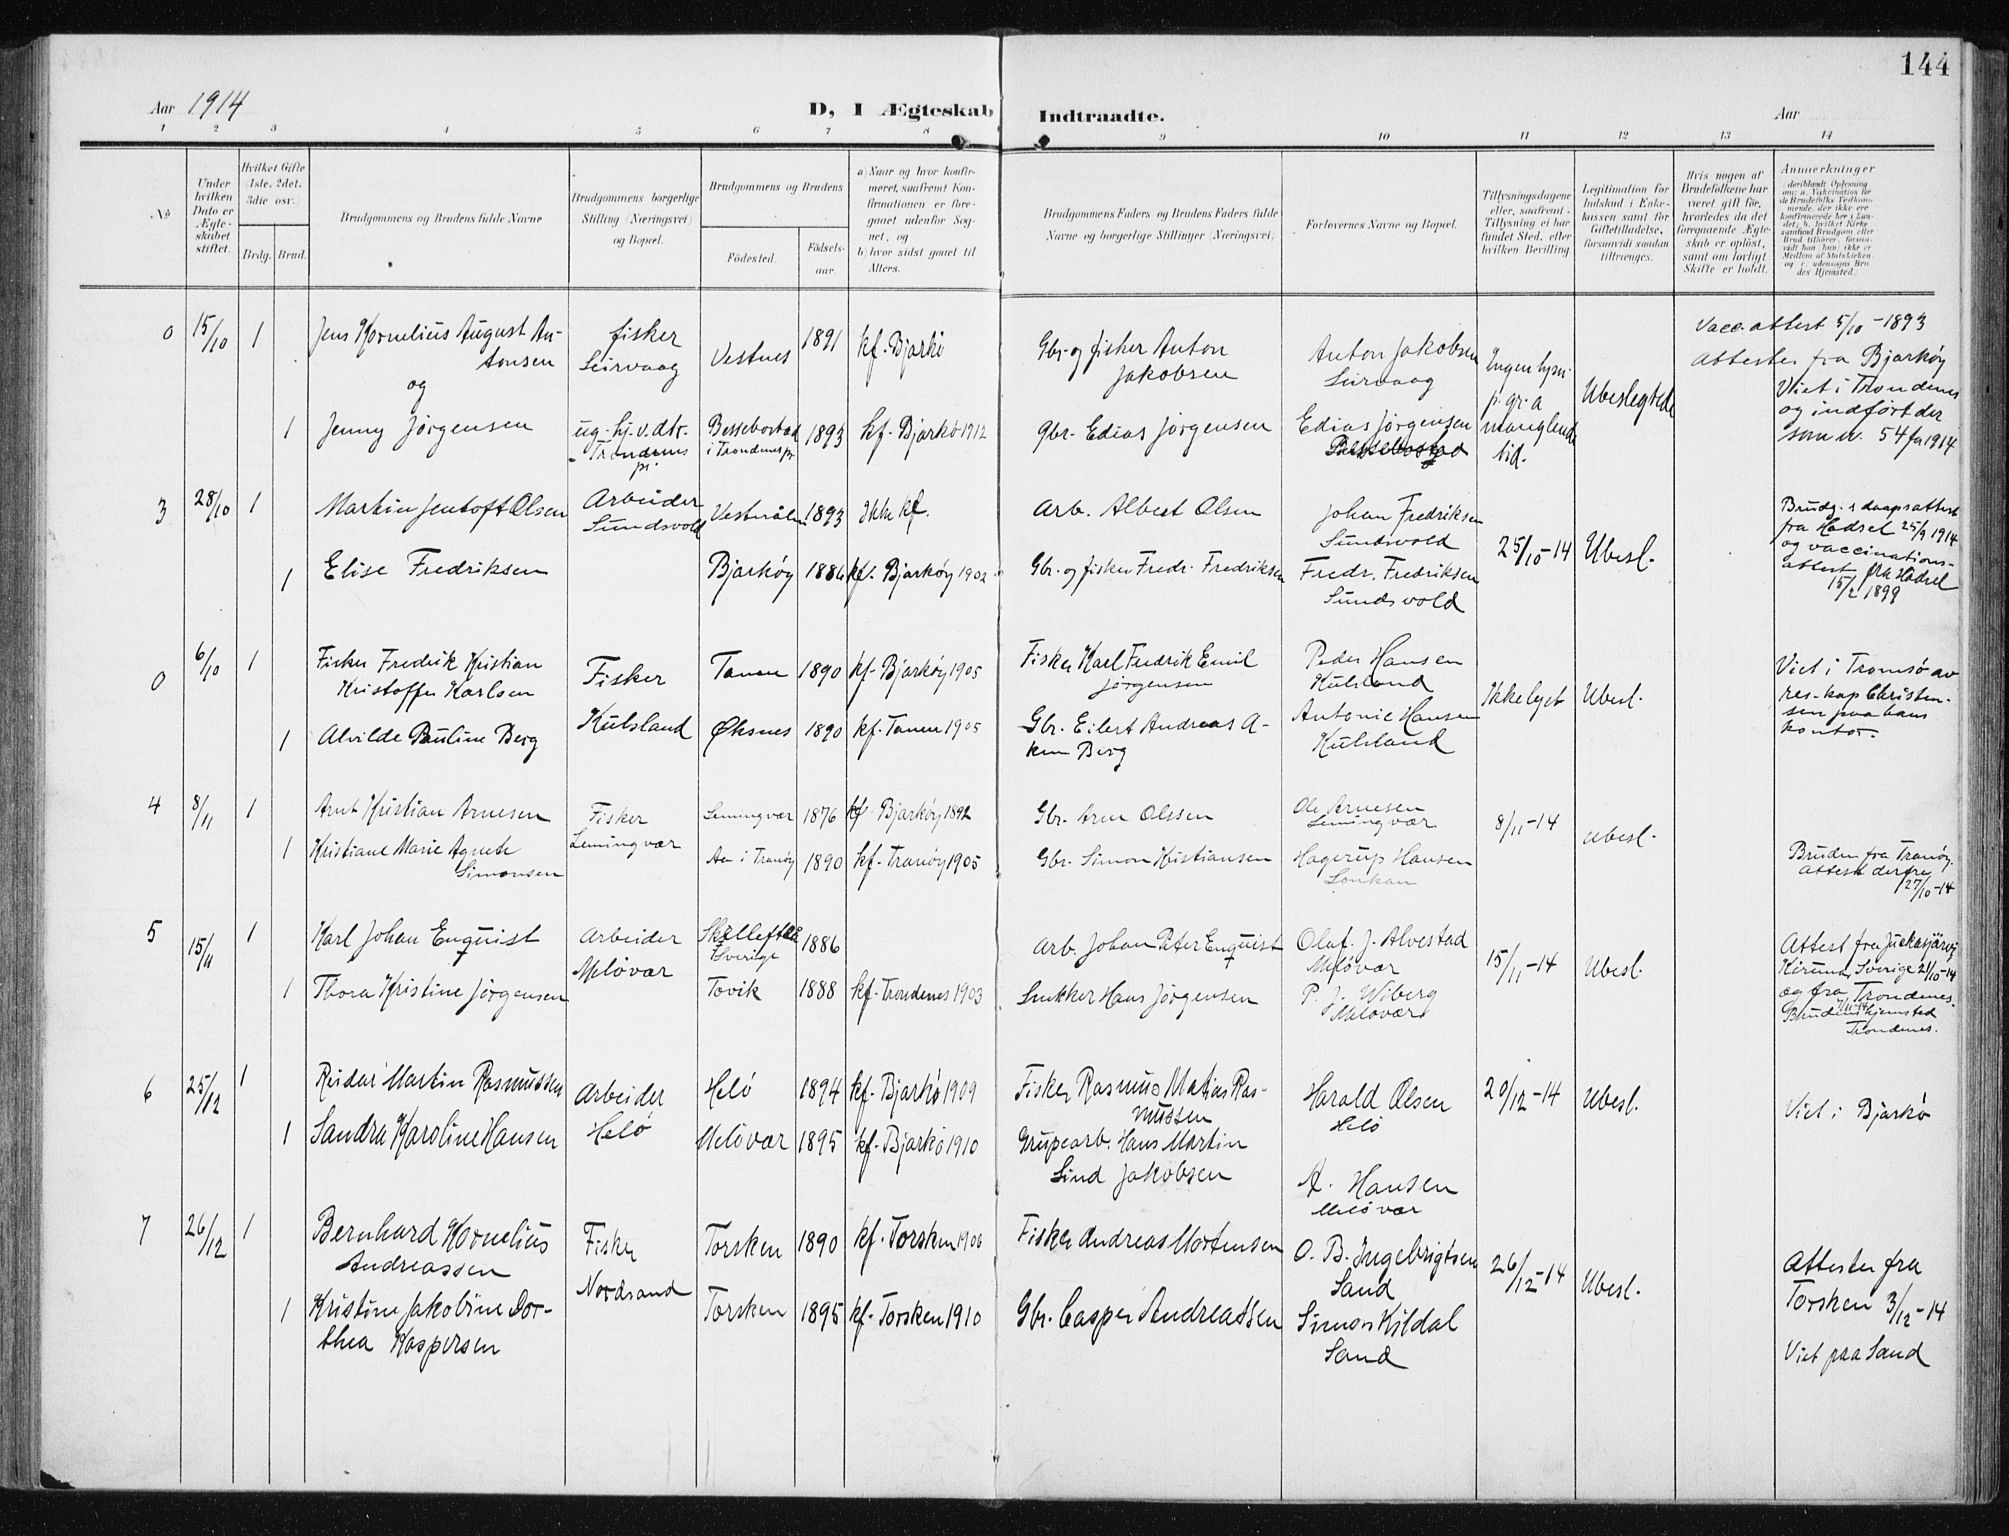 144
Aar 1914
D, I Ægteskab Indtraadte.
Aar
1 2 3 4 5 6 7 8 9 10 11 12 13 14
No
Under hvilken Dato er Ægteskabet stiftet.
Hvilket Gifte (1ste, 2det, 3die osv.)
Brdg. Brud.
Brudgommens og Brudens fulde Navne
Brudgommens borgerlige Stilling (Næringsvei) og Bopæl.
Brudgommens og Brudens
Födested.
Födselsaar.
a) Naar og hvor konfirmeret, saafremt Konfirmationen er foregaaet udenfor Sognet, og
b) hvor sidst gaaet til Alters.
Brudgommens Faders og Brudens Faders fulde Navne og borgerlige Stillinger (Næringsvei)
Forlovernes Navne og Bopæl.
Tillysningsdagene eller, saafremt Tillysning ei har fundet Sted, efter hvilken Bevilling
Legitimation for Indskud i Enkekassen samt for Giftetilladelse, forsaavidt saadan tiltrænges.
Hvis nogen af Brudefolkene har været gift før, hvorledes da det foregaaende Ægteskab er oplöst, samt om lovligt Skifte er holdt.
Anmerkninger
0 15/10 1 Jens Kornelius August Antonsen
fisker Leirvaag
Vestnes 1891 kf. Bjarkö
Gbr. og fisker Anton Jakobsen
Anton Jakobsen Leirvaag
Ingen lysn. p. gr. a manglende tid.
Ubeslegtede
Vacc. attest 5/10-1893
Attester fra Bjarköy
Viet i Trondenes og indført der som nr. 54 for 1914
og
1 Jenny Jørgensen
ug. hj. v. dtr. Trondenes pr.
Bessebostad i Trondenes pr.
1893 kf. Bjarkö 1912
Gbr. Edias Jørgensen
Edias Jørgensen
3 28/10 1 Martin Jentoft Olsen
Arbeider Sundsvold
Vesterålen 1893 Ikke kf.
Arb. Albert Olsen
Johan Fredriksen Sundsvold
25/10-14 Ubesl.
Brudg.s daapsattest fra Hadsel 25/9 1914 og vaccinationsattest fra Hadsel 15/2 1899
1 Elise Fredriksen
Bjarköy 1886 kf. Bjarköy 1902
Gbr. og fisker Fredr. Fredriksen
Fredr. Fredriksen Sundsvold
0 6/10 1 Fisker Fredrik Kristian Kristoffer Karlsen
Fisker Kulsland
Tanen 1890 kf. Bjarköy 1905
Fisker Karl Fredrik Emil Jørgensen
Peder Hansen Kulsland
Ikke lyst Ubesl.
Viet i Tromsö av res. kap Christensen paa hans kontor.
1 Alvilde Pauline Berg
Øksnes 1890 kf. Tanen 1905
Gbr. Eilert Andreas Aken Berg
Antonie Hansen Kulsland
4 8/11 1 Arnt Kristian Arnesen
Fisker Lemingvær
Lemingvær 1876 kf. Bjarköy 1892
Gbr. Arne Olssen
Ole Arnesen Lemingvær
8/11-14 Ubesl.
1 Kristiane Marie Agnete Simonsen
Aa i Tranöy 1890 kf. Tranöy 1905
Gbr. Simon Kristiansen
Hagerup Hansen
Bruden fra Tranöy. Attest derfra 27/10-14
5 15/11 1 Karl Johan Enquist
Arbeider Meløvær
Skellefteå Sverige 1886
Arb. Johan Peter Enquist
Olaf. J. Alvestad Meløvær
15/11-14 Ubesl.
Attest fra Juckasjärvi Kiruna, Sverige 21/10-14 og fra Trondenes 7/11-14
Brudens hjemsted Trondenes.
1 Thora Kristine Jørgensen
Tovik 1888 kf. Trondenes 1903
Snekker Hans Jørgensen
P. J. Wiberg Meløvær
6 25/12 1 Reidar Martin Rasmussen
Arbeider Helö
Helö 1894 kf. Bjarkö 1909
Fisker Rasmus Matias Rasmussen
Harald Olsen Helö
20/12-14 Ubesl.
Viet i Bjarkö
1 Sandra Karoline Hansen
Meløvær 1895 kf. Bjarkö 1910
Grupearb. Hans Martin Lind Jakobsen
A. Hansen Meløvær
7 26/12 1 Bernhard Kornelius Andreassen
Fisker Nordsand
Torsken 1890 kf. Torsken 1906
Fisker Andreas Mortensen
O. B. Ingebrigtsen Sand
26/12-14 Ubesl.
Attester fra Torsken 3/12-14
Viet paa Sand
1 Kristine Jakobine Dorthea Kaspersen
Torsken 1895 kf. Torsken 1910
Gbr. Casper Andreassen
Simon Kildal Sand